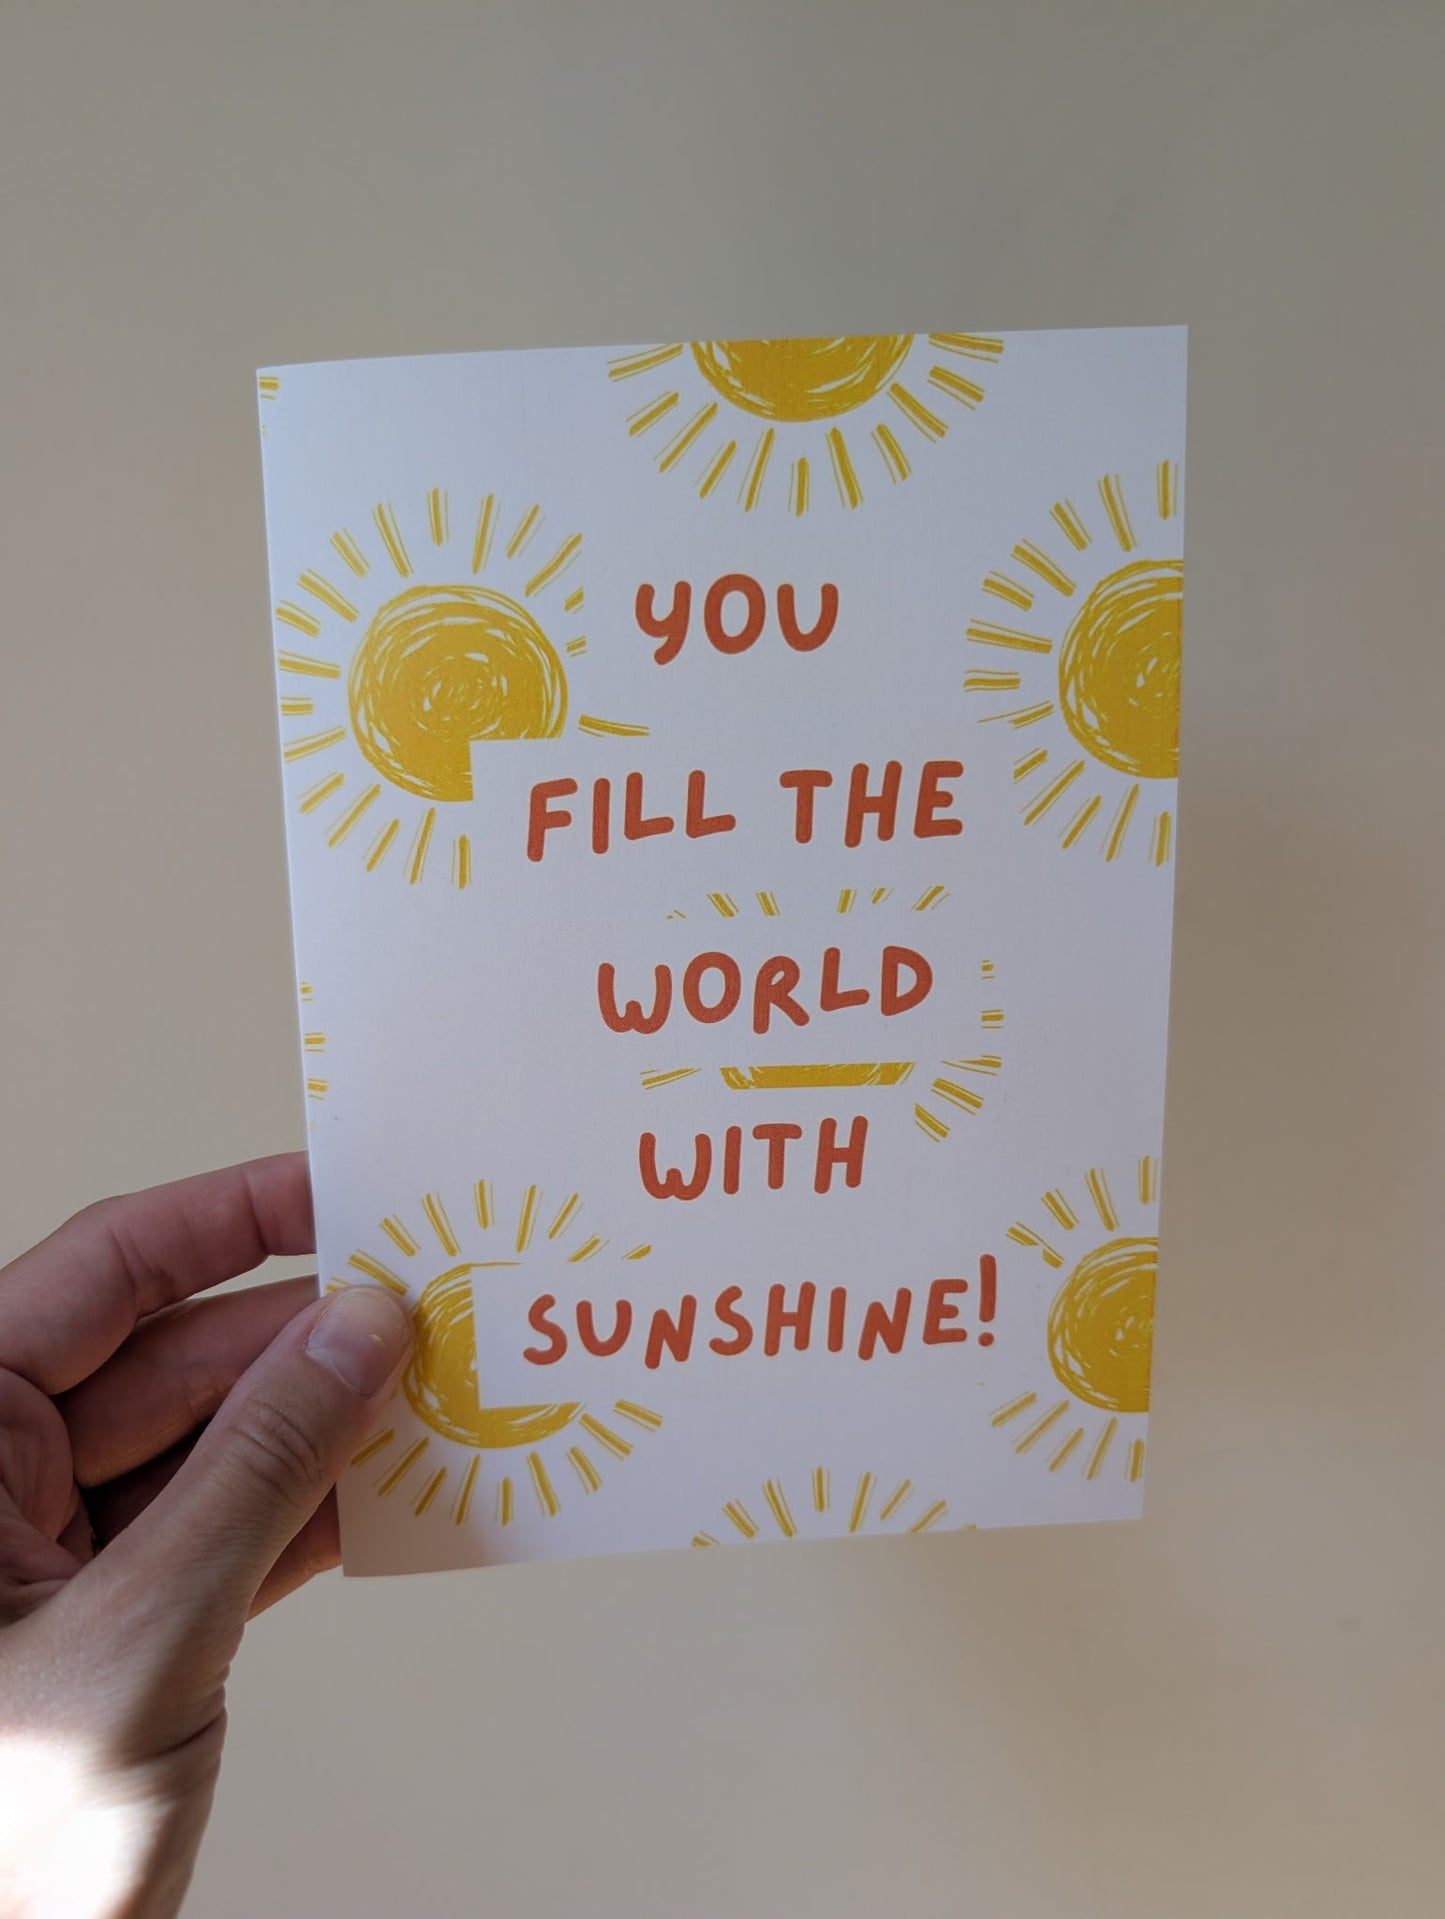 YOU
FILL THE
WORLD
WITH
SUNSHINE!